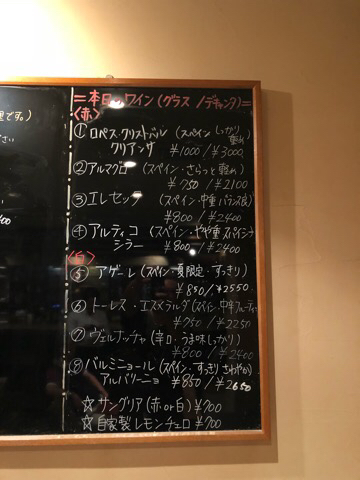 理です。)
さい
=本日のワイン(グラス/デキャンタ)=
<赤>
① ロペス・クリストバル (スペイン しっかり
クリアンサ ¥1000/¥3000
② アルマグロ (スペイン・さらっと軽め)
¥750/¥2100
③ エレセッテ (スペイン・中重 バランス良)
¥800/¥2400
④ アルティコ (スペイン・やや重 スパイシー)
シラー ¥800/¥2400
<白>
⑤ アゲーレ (スペイン・夏限定・すっきり)
¥850/¥2550
⑥ トーレス・エスメラルダ (スペイン・中辛フルーティー
¥750/¥2250
⑦ ヴェルナッチャ (辛口・うま味しっかり)
¥800/¥2400
⑧ バルミニョール (スペイン・すっきりさわやか)
アルバリーニョ ¥850/¥2650
☆ サングリア(赤or白) ¥700
☆ 自家製レモンチェロ ¥700